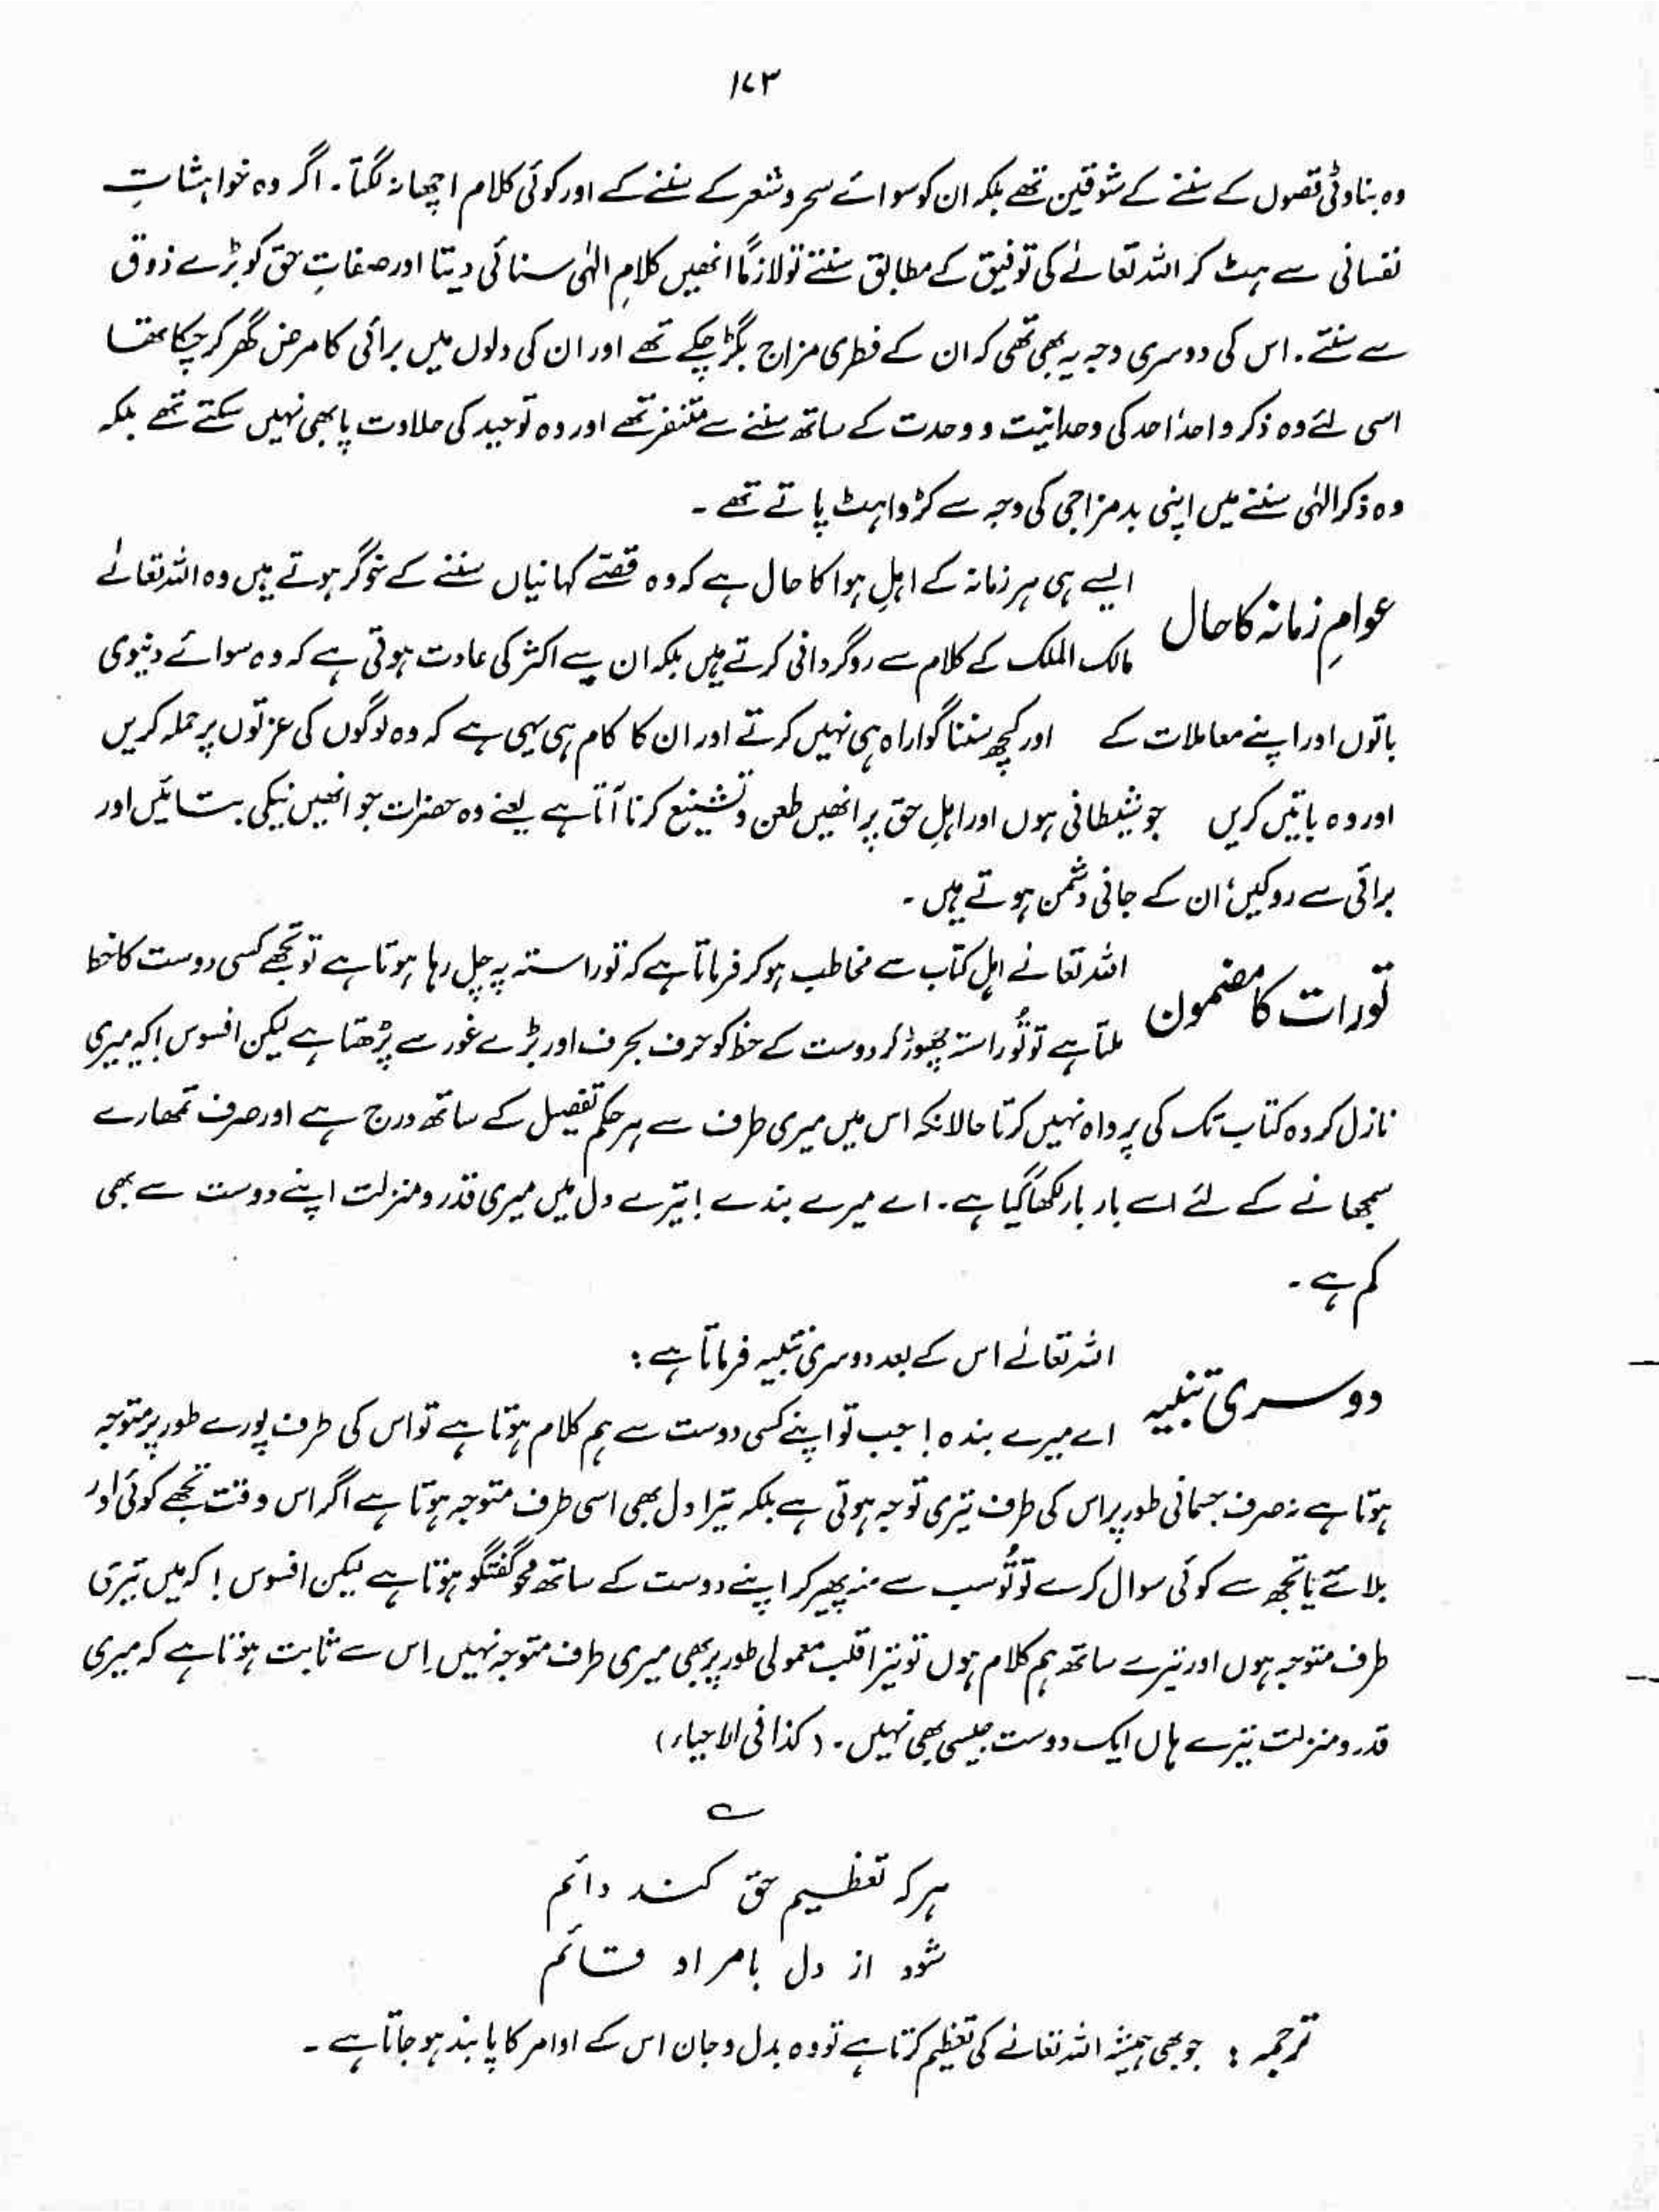 ۱۷۳
وہ بناوٹی قصوں کے سننے کے شوقین تھے بلکہ ان کو سوائے سحر و شعر کے سننے کے اور کوئی کلام اچھا نہ لگتا۔ اگر وہ خواہشاتِ
نفسانی سے ہٹ کر اللہ تعالےٰ کی توفیق کے مطابق سنتے تو لازمًا انھیں کلامِ الٰہی سنائی دیتا اور صفاتِ حق کو بڑے ذوق
سے سنتے۔ اس کی دوسری وجہ یہ بھی تھی کہ ان کے فطری مزاج بگڑ چکے تھے اور ان کی دلوں میں برائی کا مرض گھر کر چکا تھا
اسی لئے وہ ذکر واحد احد کی وحدانیت و وحدت کے ساتھ سننے سے متنفر تھے اور وہ توحید کی حلاوت پا بھی نہیں سکتے تھے بلکہ
وہ ذکر الٰہی سننے میں اپنی بدمزاجی کی وجہ سے کڑواہٹ پاتے تھے۔
عوامِ زمانہ کا حال
ایسے ہی ہر زمانہ کے اہلِ ہوا کا حال ہے کہ وہ قصّے کہانیاں سننے کے خوگر ہوتے ہیں وہ اللہ تعالےٰ
مالک الملک کے کلام سے روگردانی کرتے ہیں بلکہ ان سے اکثر کی عادت ہوتی ہے کہ وہ سوائے دنیوی
باتوں اور اپنے معاملات کے اور کچھ سننا گوارا ہ ہی نہیں کرتے اور ان کا کام ہی یہی ہے کہ وہ لوگوں کی عزتوں پر حملہ کریں
اور وہ باتیں کریں جو شیطانی ہوں اور اہلِ حق پر انھیں طعن و تشنیع کرنا آتا ہے یعنے وہ حضرات جو انھیں نیکی بتائیں اور
برائی سے روکیں، ان کے جانی دشمن ہوتے ہیں۔
تورات کا مضمون
اللہ تعالےٰ نے اہلِ کتاب سے مخاطب ہو کر فرماتا ہے کہ تو راستہ پہ چل رہا ہوتا ہے تو تجھے کسی دوست کا خط
ملتا ہے تو تُو راستہ چھوڑ کر دوست کے خط کو حرف بحرف اور بڑے غور سے پڑھتا ہے لیکن افسوس! کہ میری
نازل کردہ کتاب تک کی پرواہ نہیں کرتا حالانکہ اس میں میری طرف سے ہر حکم تفصیل کے ساتھ درج ہے اور صرف تمھارے
سمجھانے کے لئے اسے بار بار لکھا گیا ہے۔ اے میرے بندے! تیرے دل میں میری قدر و منزلت اپنے دوست سے بھی
کم ہے۔
دوسری تنبیہ
اللہ تعالےٰ اس کے بعد دوسری تنبیہ فرماتا ہے:
اے میرے بندہ! جب تو اپنے کسی دوست سے ہم کلام ہوتا ہے تو اس کی طرف پورے طور پر متوجہ
ہوتا ہے نہ صرف جسمانی طور پر اس کی طرف تیری توجہ ہوتی ہے بلکہ تیرا دل بھی اسی طرف متوجہ ہوتا ہے اگر اس وقت تجھے کوئی اور
بلائے یا تجھ سے کوئی سوال کرے تو تُو سب سے منہ پھیر کر اپنے دوست کے ساتھ محو گفتگو ہوتا ہے لیکن افسوس! کہ میں تیری
طرف متوجہ ہوں اور تیرے ساتھ ہم کلام ہوں تو تیرا قلب معمولی طور پر بھی میری طرف متوجہ نہیں۔ اِس سے ثابت ہوتا ہے کہ میری
قدر و منزلت تیرے ہاں ایک دوست جیسی بھی نہیں۔ (کذا فی الاحیاء)
ہر کہ تعظیم حق کند دائم
شود از دل بامراد قائم
ترجمہ : جو بھی ہمیشہ اللہ تعالےٰ کی تعظیم کرتا ہے تو وہ بدل و جان اس کے اوامر کا پابند ہو جاتا ہے۔